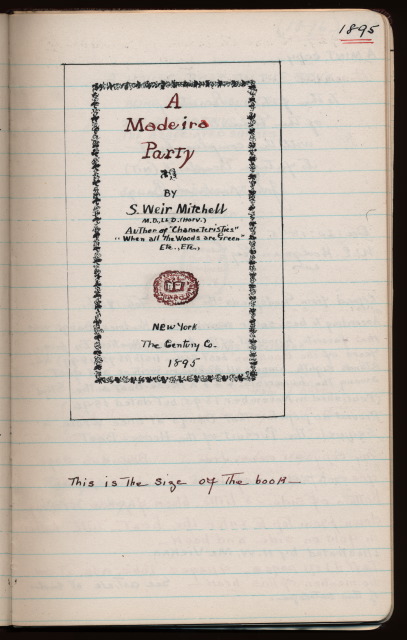 1895
A
Madeira
Party
BY
S. Weir Mitchell
M.D., LL.D. (Harv.)
Author of "Characteristics"
"When all the Woods are Green"
Etc., Etc.,
New York
The Century Co.
1895
This is the size of the book—